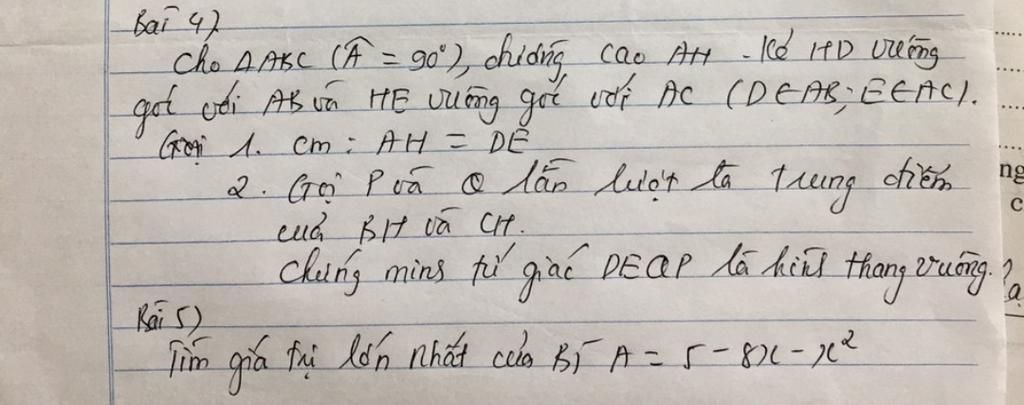 Bài 4)
Cho ΔABC (Â = 90°), đường cao AH. Kẻ HD vuông
góc với AB và HE vuông góc với AC (D∈AB; E∈AC).
1. cm: AH = DE
2. Gọi P và Q lần lượt là trung điểm
của BH và CH.
Chứng minh tứ giác DEQP là hình thang vuông.
Bài 5)
Tìm giá trị lớn nhất của BT A = 5 - 8x - x²
ng
c